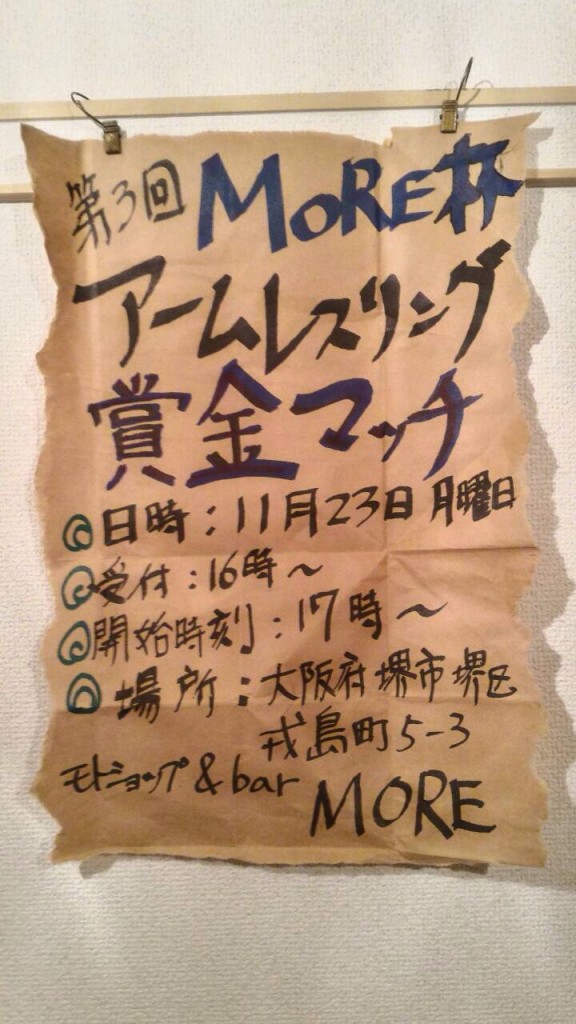 第3回 MORE杯
アームレスリング
賞金マッチ
◎日時:11月23日 月曜日
◎受付:16時〜
◎開始時刻:17時〜
◎場所:大阪府堺市堺区
戎島町5-3
モトショップ&bar MORE